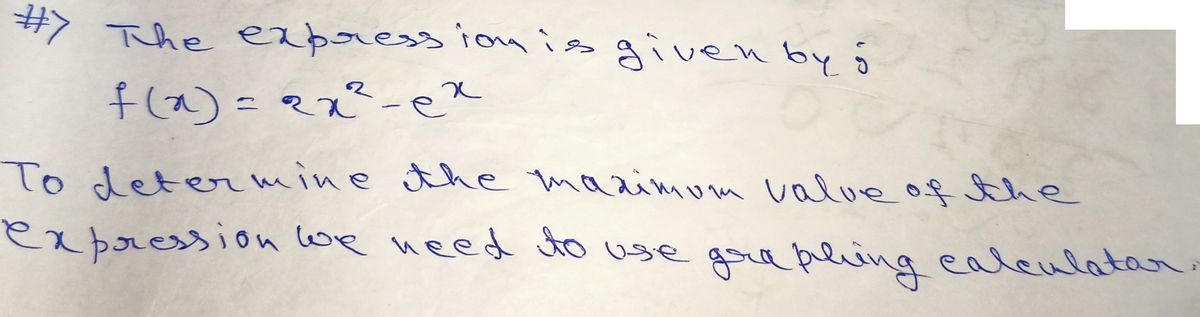 #> The expression is given by ;
f(x) = 2x² - eˣ
To determine the maximum value of the
expression we need to use graphing calculatar.